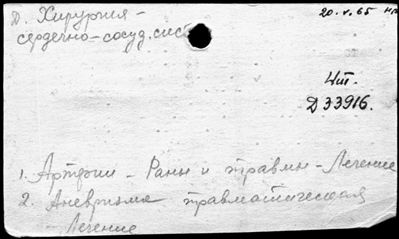 Д. Хирургия -
20.V.65
сердечно-сосуд. сист
Шт.
Д 33916.
1. Артерии - Раны и травмы - Лечение
2. Аневризма травматическая
- Лечение